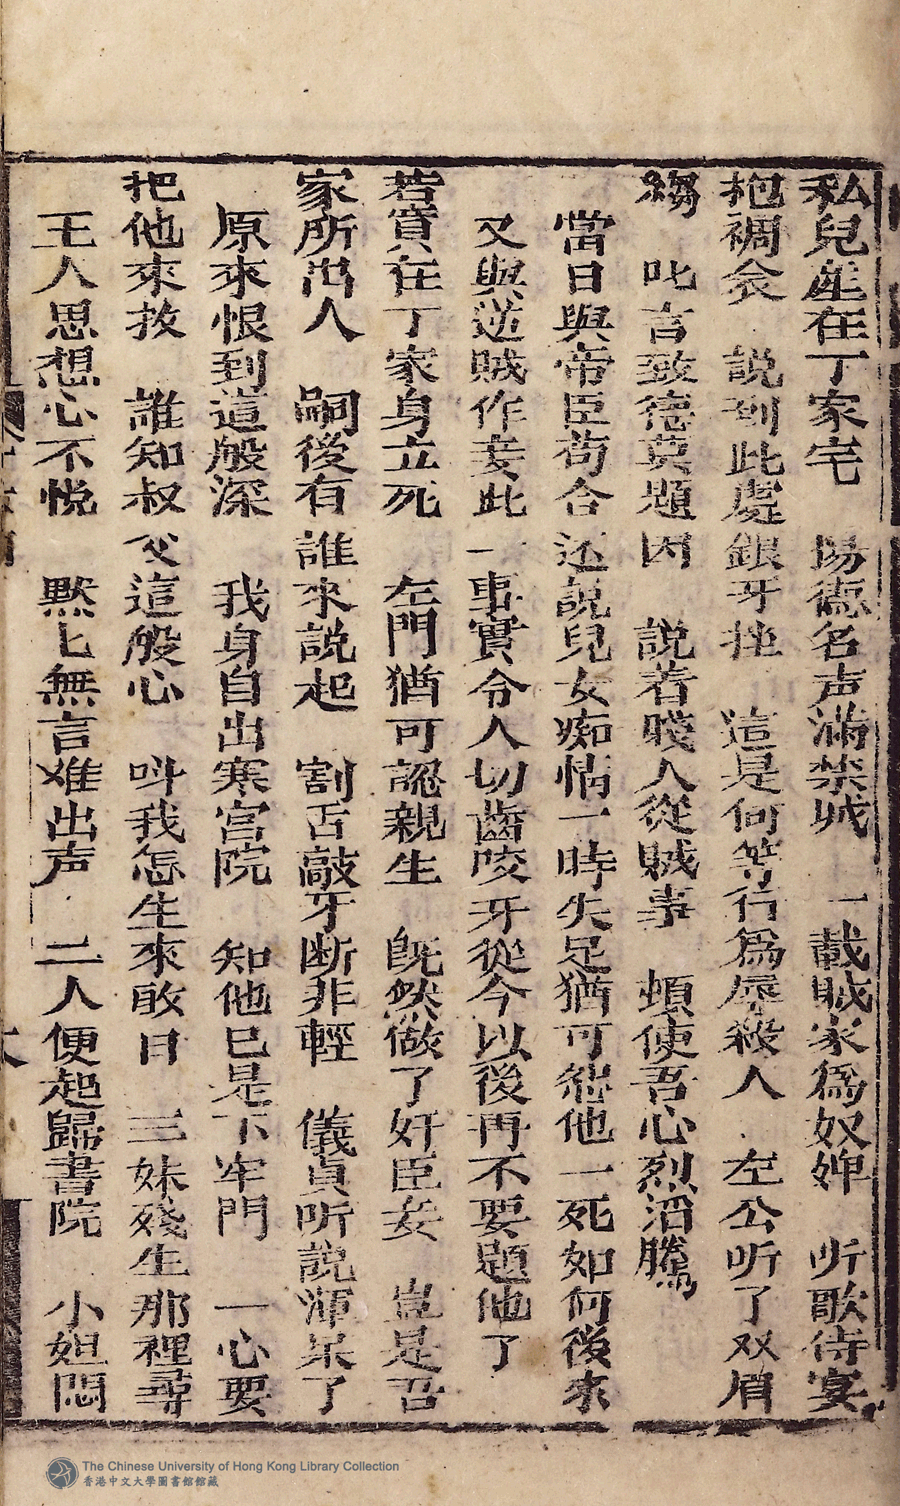 私兒産在丁家宅　陽德名声滿禁城　一載賊家爲奴婢　听歌待宴
抱裯衾　說到此處銀牙挫　這是何等行爲辱殺人　左公听了双眉
縐　叱言致德莫題因　說着賤人從賊事　頓使吾心烈滔騰
當日與帝臣苟合还說兒女痴情一時失足猶可他一死如何後來
又與逆賊作妾此一事實令人切齒咬牙從今以後再不要題他了
若實在丁家身立死　左門猶可認親生　既然做了奸臣妾　豈是吾
家所出人　嗣後有誰來說起　割舌敲牙断非輕　儀貞听說渾呆了
原來恨到這般深　我身自出寒宫院　知他已是下牢門　一心要
把他來救　誰知叔父這般心　呌我怎生來敢日　三妹殘生那裡尋
王人思想心不悅　黙匕無言难出声　二人便起歸書院　小妲悶
The Chinese University of Hong Kong Library Collection
香港中文大學圖書館館藏